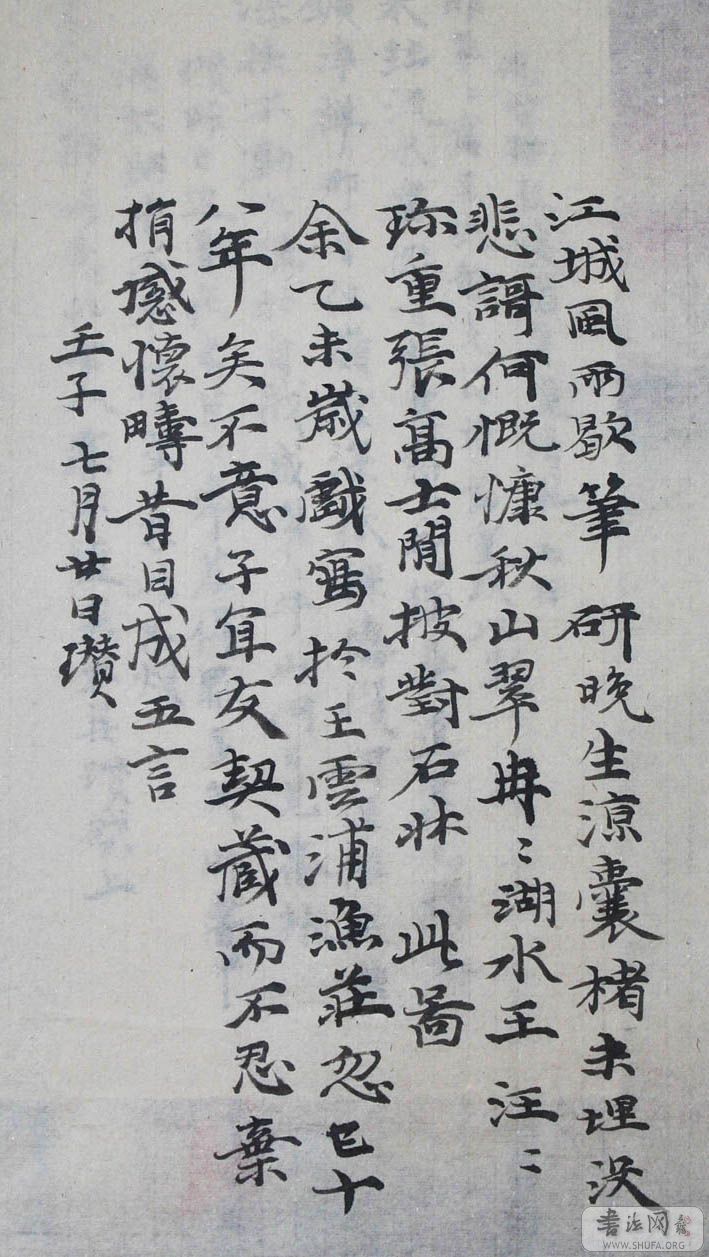 江城風雨歇筆研晚生涼囊楮未埋没
悲謌何慨慷秋山翠冉〻湖水王汪〻
珎重張高士閒披對石牀 此啚
余乙未歲戲寫於王雲浦漁莊忽已十
八年矣不意子宜友契藏而不忍棄
捐感懷疇昔因成五言
壬子七月廿日瓚
書法网
WWW.SHUFA.ORG